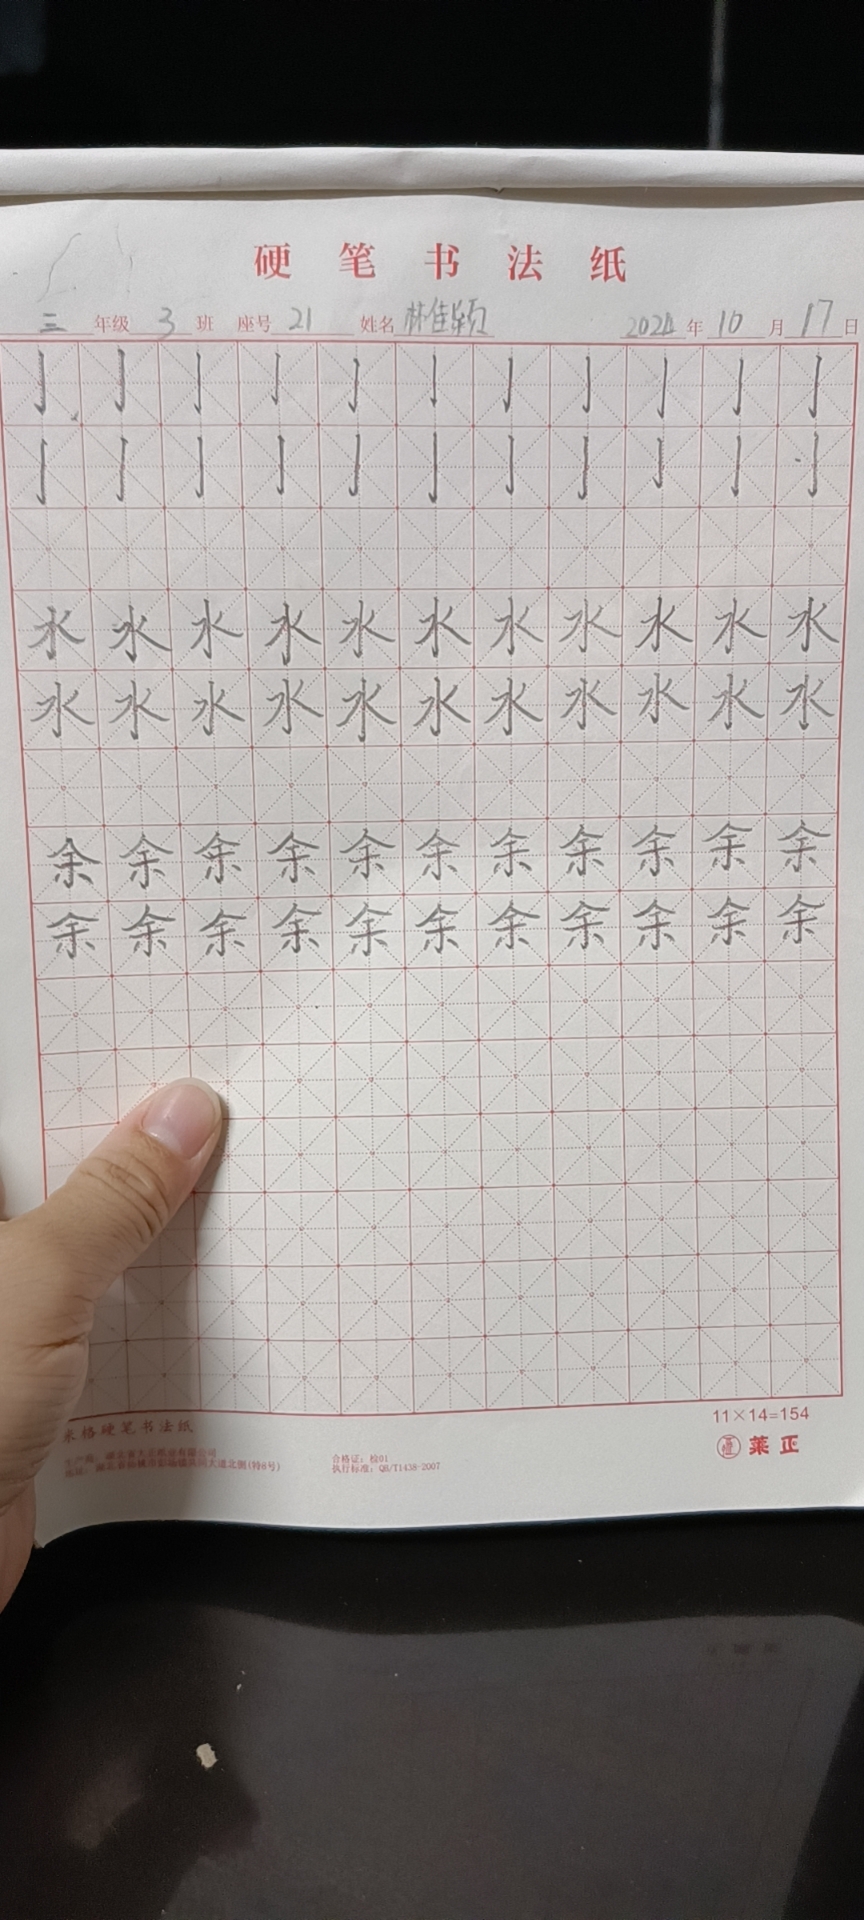 硬笔书法纸
三年级 3 班 座号 21 姓名 林佳颖 2024 年 10 月 17 日
亅亅亅亅亅亅亅亅亅亅亅
亅亅亅亅亅亅亅亅亅亅亅
水水水水水水水水水水水
水水水水水水水水水水水
余余余余余余余余余余余
余余余余余余余余余余余
米格硬笔书法纸
11×14=154
合格证:检01
莱正
执行标准:QB/T1438-2007